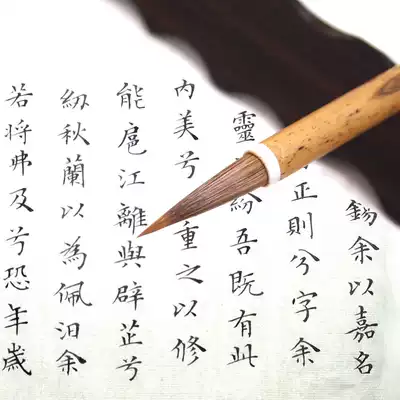 錫余以嘉名
正則兮字余
靈紛吾既有此
內美兮重之以修
能扈江離與辟芷兮
紉秋蘭以為佩汩余
若將弗及兮恐年歲